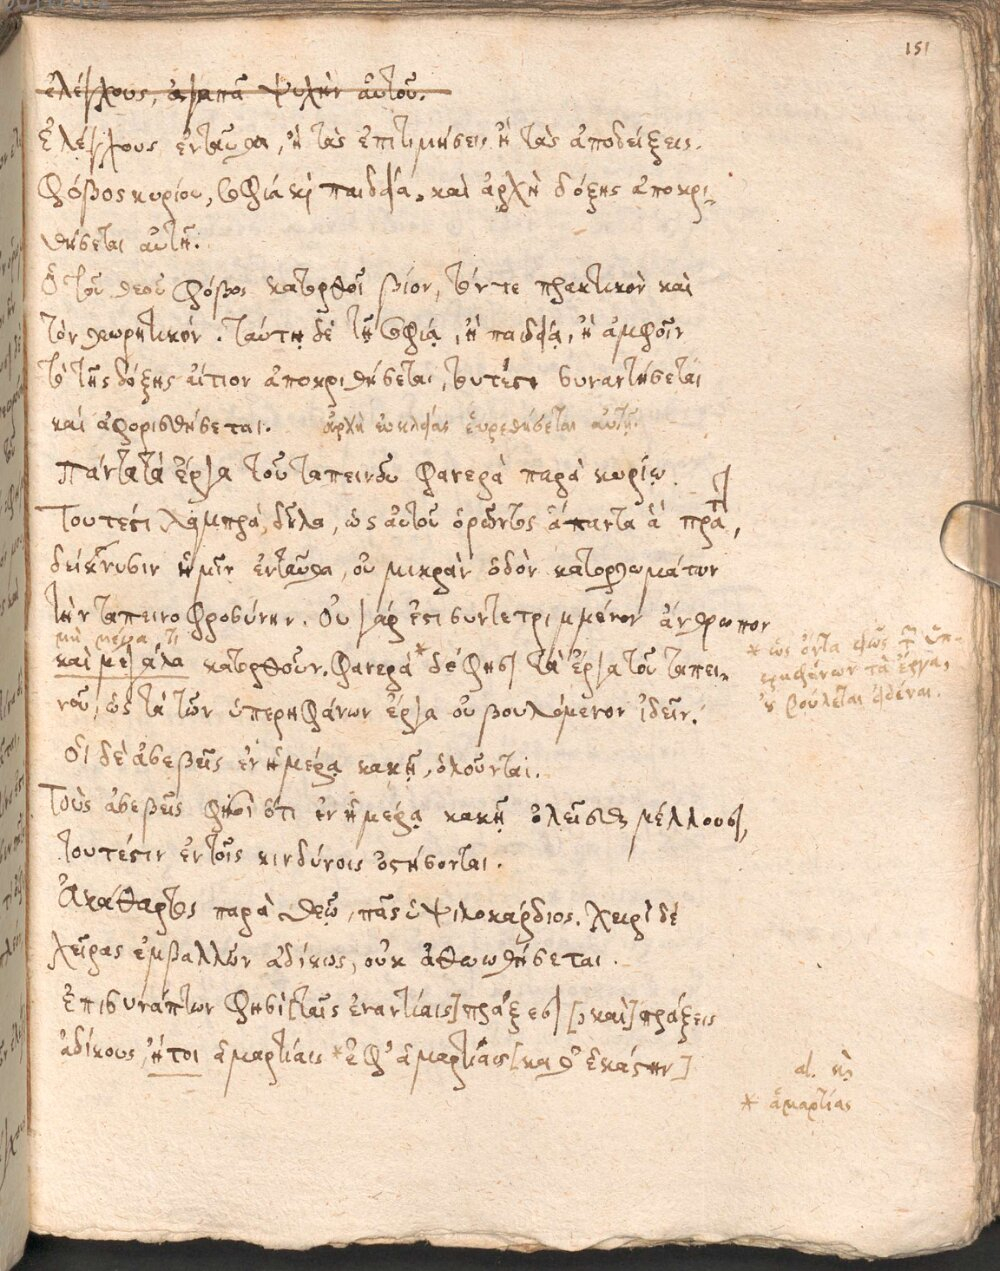 151
ἐλέγχους, ἀγαπᾶ ψυχὴν αὐτοῦ.
Ἐλέγχους ἐνταῦθα, ἢ τὰς ἐπιτιμήσεις ἢ τὰς ἀποδείξεις.
Φόβος κυρίου, σοφία κὶ παιδεία, καὶ ἀρχὴ δόξης ἀποκρι-
θήσεται αὐτῇ.
Ὁ τοῦ θεοῦ φόβος κατορθοῖ βίον, τόν τε πρακτικὸν καὶ
τὸν θεωρητικόν. ταύτῃ δὲ τῇ σοφίᾳ, ἢ παιδείᾳ, ἢ ἀμφοῖν
τὸ τῆς δόξης αἴτιον ἀποκριθήσεται, τουτέστι συναντήσεται
καὶ ἀφορισθήσεται. ἀρχὴ εὐκλείας εὑρεθήσεται αὐτῇ.
Πάντα τὰ ἔργα τοῦ ταπεινοῦ φανερὰ παρὰ κυρίῳ.
Τουτέστι λαμπρά, δῆλα, ὡς αὐτοῦ ὁρῶντος ἅπαντα ἃ πρά,
δείκνυσιν ἡμῖν ἐνταῦθα, οὐ μικρὰν ὁδὸν κατορθωμάτων
τὴν ταπεινοφροσύνην. Οὐ γάρ ἐστι συντετριμμένον ἄνθρωπον
μὴ μέγα τι
καὶ μεγάλα κατορθοῦν. φανερά * δέ φησι τὰ ἔργα τοῦ ταπει-
νοῦ, ὡς τὰ τῶν ὑπερηφάνων ἔργα οὐ βουλόμενον ἰδεῖν.
* ὡς ὄντα φῶς τ ὑπε-
ρηφάνων τὰ ἔργα,
ȣ̓ βούλεται εἰδέναι.
Οἱ δὲ ἀσεβεῖς ἐν ἡμέρᾳ κακῇ, ὀλοῦνται.
Τοὺς ἀσεβεῖς φησὶ ὅτι ἐν ἡμέρᾳ κακῇ ὀλεῖσθαι μέλλουσι,
τουτέστιν ἐν τοῖς κινδύνοις
Ἀκάθαρτος παρὰ θεῷ, πᾶς ὑψηλοκάρδιος. χειρὶ δὲ
χεῖρας ἐμβαλλὼν ἀδίκως, οὐκ ἀθωωθήσεται.
Ἐπισυνάπτων φησὶ [ταῖς ἐναντίαις] πράξεσι [καὶ] πράξεις
ἀδίκους, ἤτοι ἁμαρτίαις * ἐφ' ἁμαρτίαις [καθ' ἑκάστην]
al. κὶ
* ἁμαρτίας